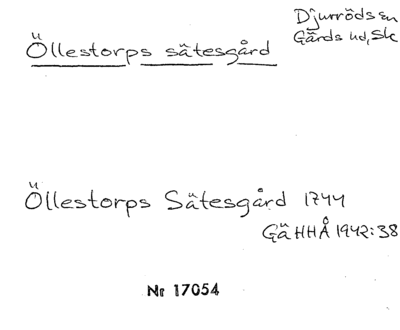 Öllestorps sätesgård
Djurröds sn
Gärds hd, Sk
Öllestorps Sätesgård 1744
GäHHÅ 1942:38
Nr 17054